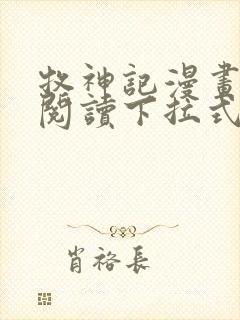 牧神記漫畫
閱讀下拉式
肖裕長